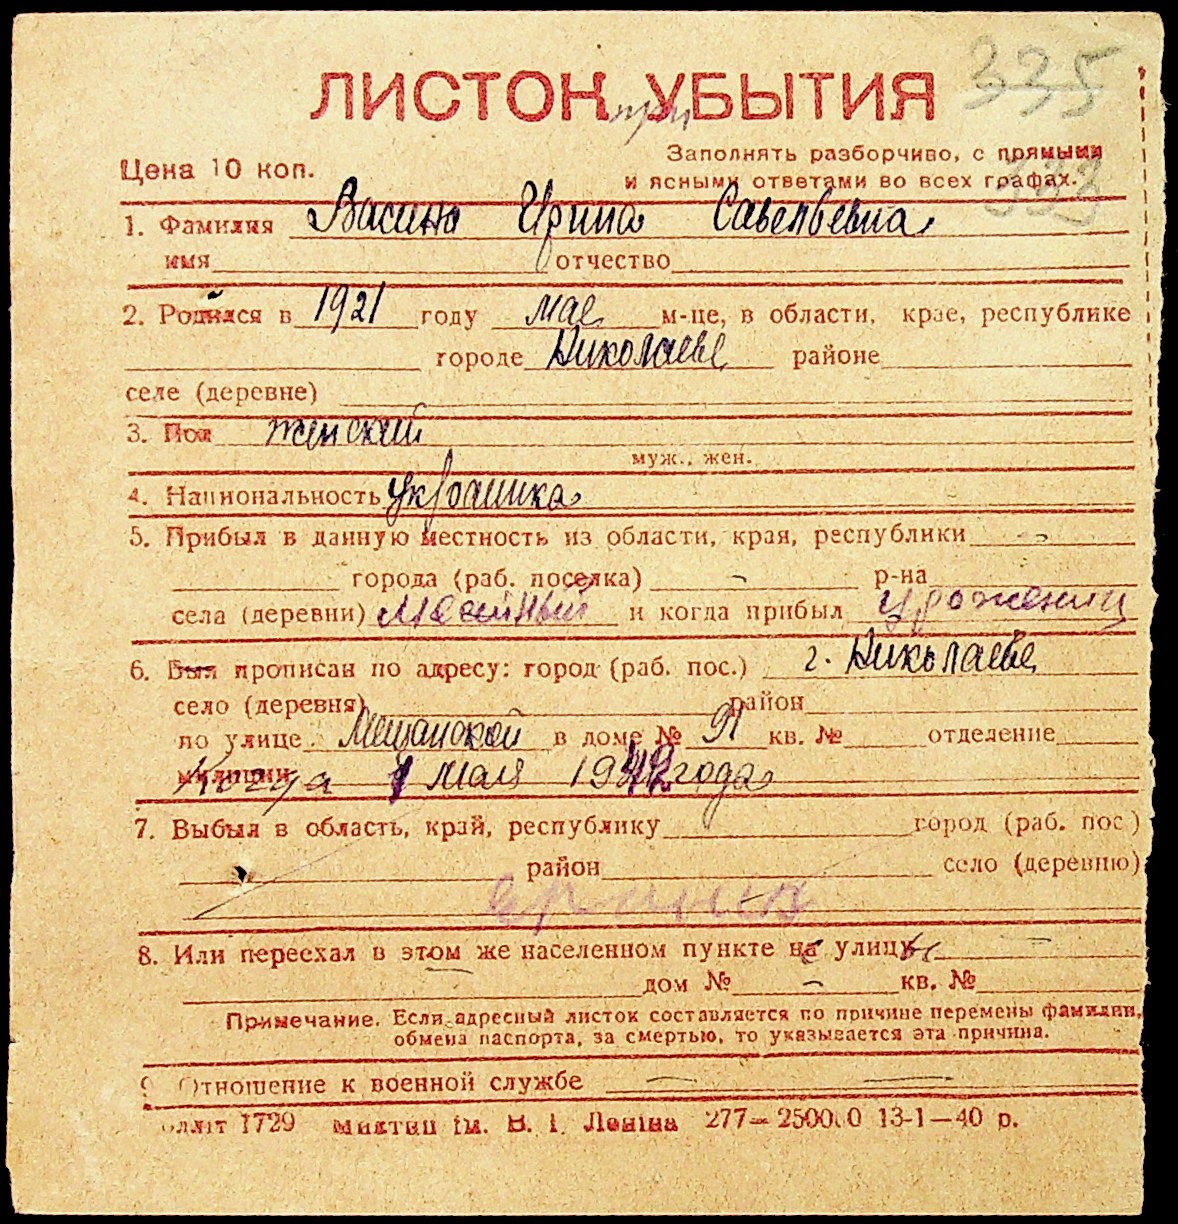 335
ЛИСТОК при УБЫТИЯ
Цена 10 коп.
Заполнять разборчиво, с прямыми
и ясными ответами во всех графах.
333
1. Фамилия Васина Ирина Савельевна
имя отчество
2. Родился в 1921 году мае м-це, в области, крае, республике
городе Николаеве районе
селе (деревне)
3. Пол женский
муж., жен.
4. Национальность украинка
5. Прибыл в данную местность из области, края, республики –
города (раб. поселка) – р-на
села (деревни) Местный и когда прибыл уроженец
6. Был прописан по адресу: город (раб. пос.) г. Николаеве
село (деревня) район
по улице Мещанской в доме № 91 кв. № отделение
милиции Когда 1 мая 1942 года
7. Выбыл в область, край, республику город (раб. пос.)
район село (деревню)
8. Или переехал в этом же населенном пункте на улицу –
– дом № – кв. №
Примечание. Если адресный листок составляется по причине перемены фамилии,
обмена паспорта, за смертью, то указывается эта причина.
9 Отношение к военной службе — —
1729 ім. В. І. Леніна 277—250000 13-1—40 р.